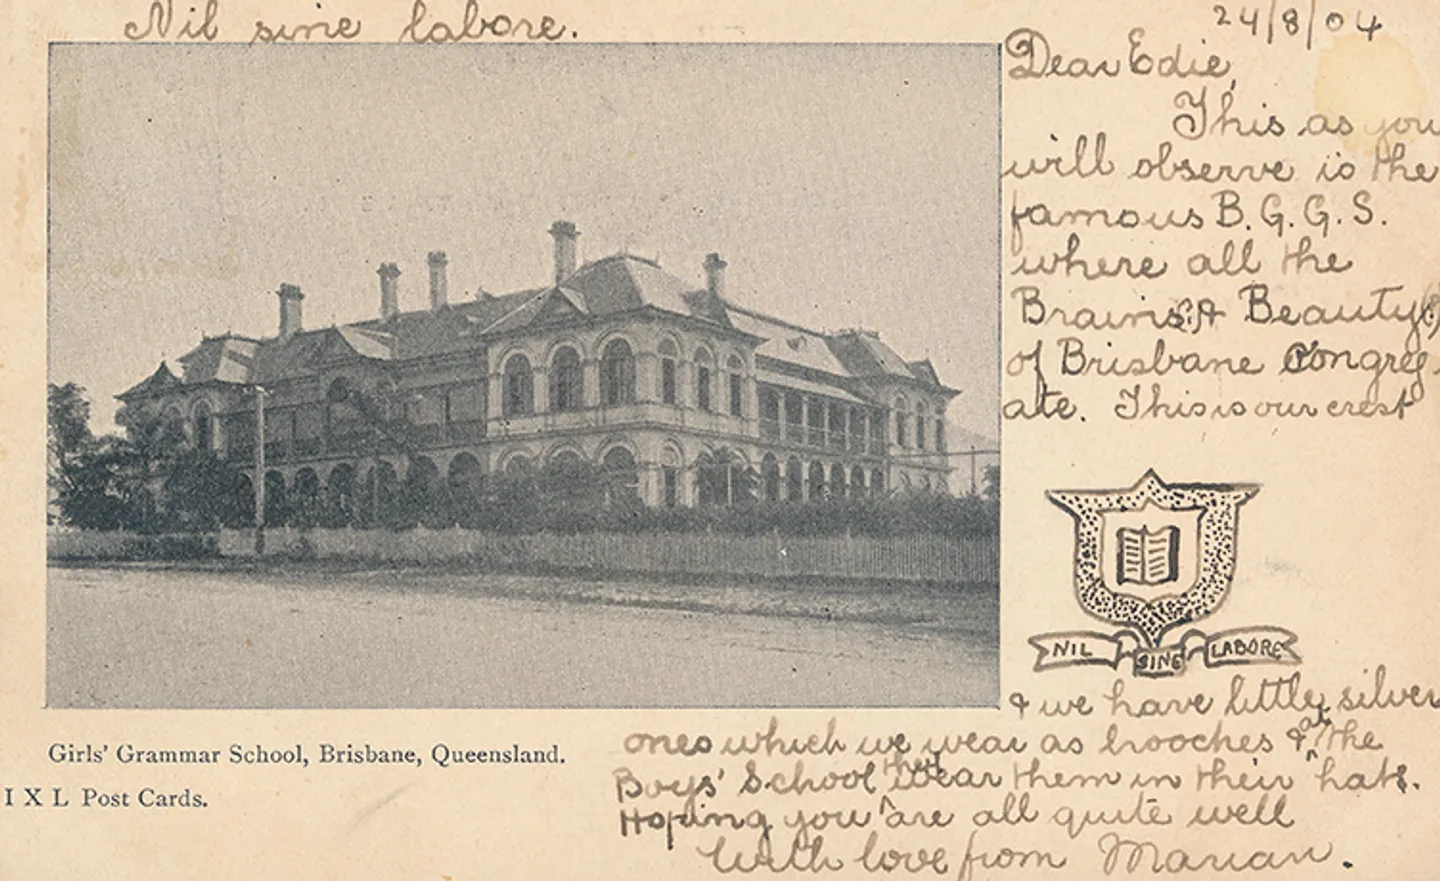 Nil sine labore.
24/8/04
Dear Edie,
This as you
will observe is the
famous B.G.G.S.
where all the
Brains & Beauty
of Brisbane Congreg-
ate. This is our crest
NIL SINE LABORE
& we have little silver
ones which we wear as brooches & at the
Boys' School they wear them in their hats.
Hoping you are all quite well
With love from Marian.
Girls' Grammar School, Brisbane, Queensland.
I X L Post Cards.